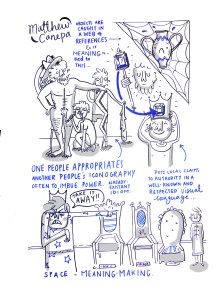 Matthew
Canepa
OBJECTS ARE
CAUGHT IN
A WEB of
REFERENCES
MEANING is
tied to
THIS...
ONE PEOPLE APPROPRIATES
ANOTHER PEOPLE'S ICONOGRAPHY
OFTEN to IMBUE POWER.
ALREADY-
EXISTANT
PUTS LOCAL CLAIMS
TO AUTHORITY IN A
WELL-KNOWN AND
RESPECTED VISUAL
LANGUAGE...
TAKE IT
AWAY!!
SPACE - MEANING-MAKING.